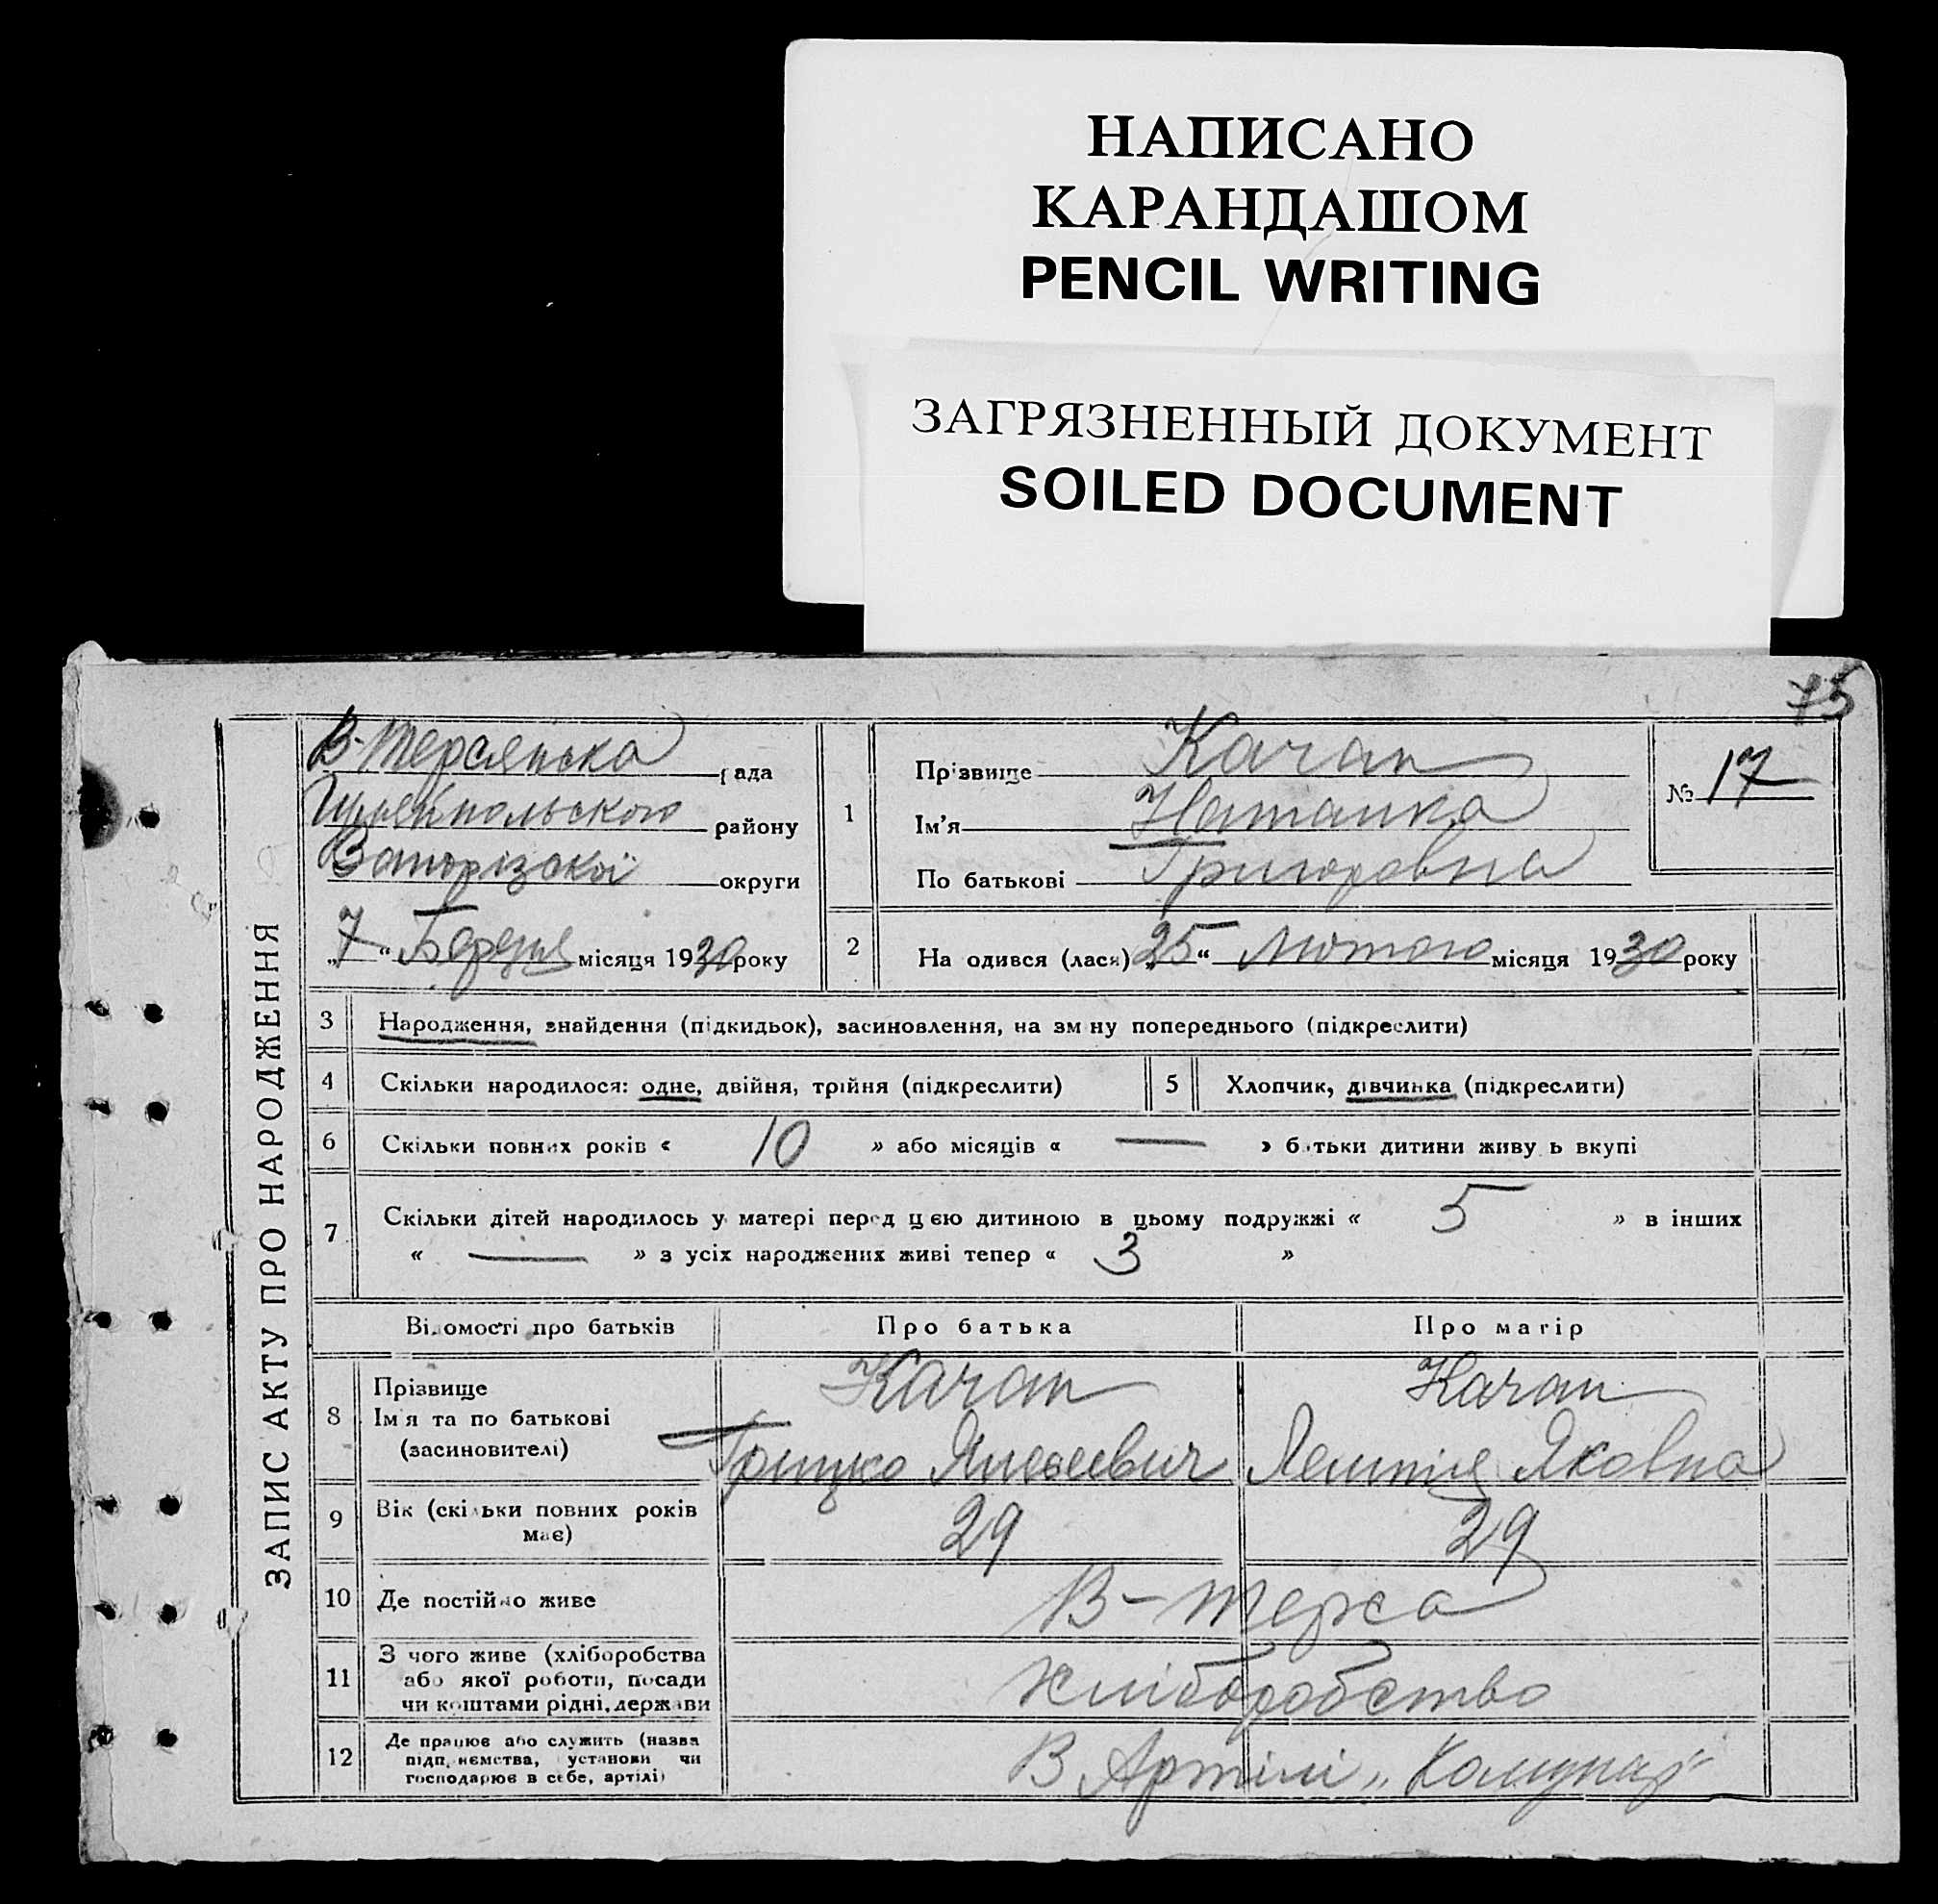 НАПИСАНО
КАРАНДАШОМ
PENCIL WRITING
ЗАГРЯЗНЕННЫЙ ДОКУМЕНТ
SOILED DOCUMENT
75
ЗАПИС АКТУ ПРО НАРОДЖЕННЯ
В-Терсянська рада
району
Запорізької округи
„7“ Березня місяця 1930 року
1
Прізвище Качан
Ім'я Наталка
По батькові Григоровна
№ 17
2 На одився (лася) „25“ Лютого місяця 1930 року
3 Народження, знайдення (підкидьок), засиновлення, на зм ну попереднього (підкреслити)
4 Скільки народилося: одне, двійня, трійня (підкреслити) 5 Хлопчик, дівчинка (підкреслити)
6 Скільки повних років « 10 » або місяців « — » батьки дитини живу ь вкупі
7 Скільки дітей народилось у матері перед цією дитиною в цьому подружжі « 5 » в інших
« — » з усіх народжених живі тепер « 3 »
Відомості про батьків Про батька Про матір
8 Прізвище Качан Качан
Ім'я та по батькові
(засиновителі) Грицько Яковна
9 Вік (скільки повних років має) 29 29
10 Де постійно живе В-Терса
11 З чого живе (хліборобства
або якої роботи, посади
чи коштами рідні, держави Хліборобство
12 Де працює або служить (назва
підп иємства, установи чи
господарює в себе, артілі) В Артілі „Комунар"